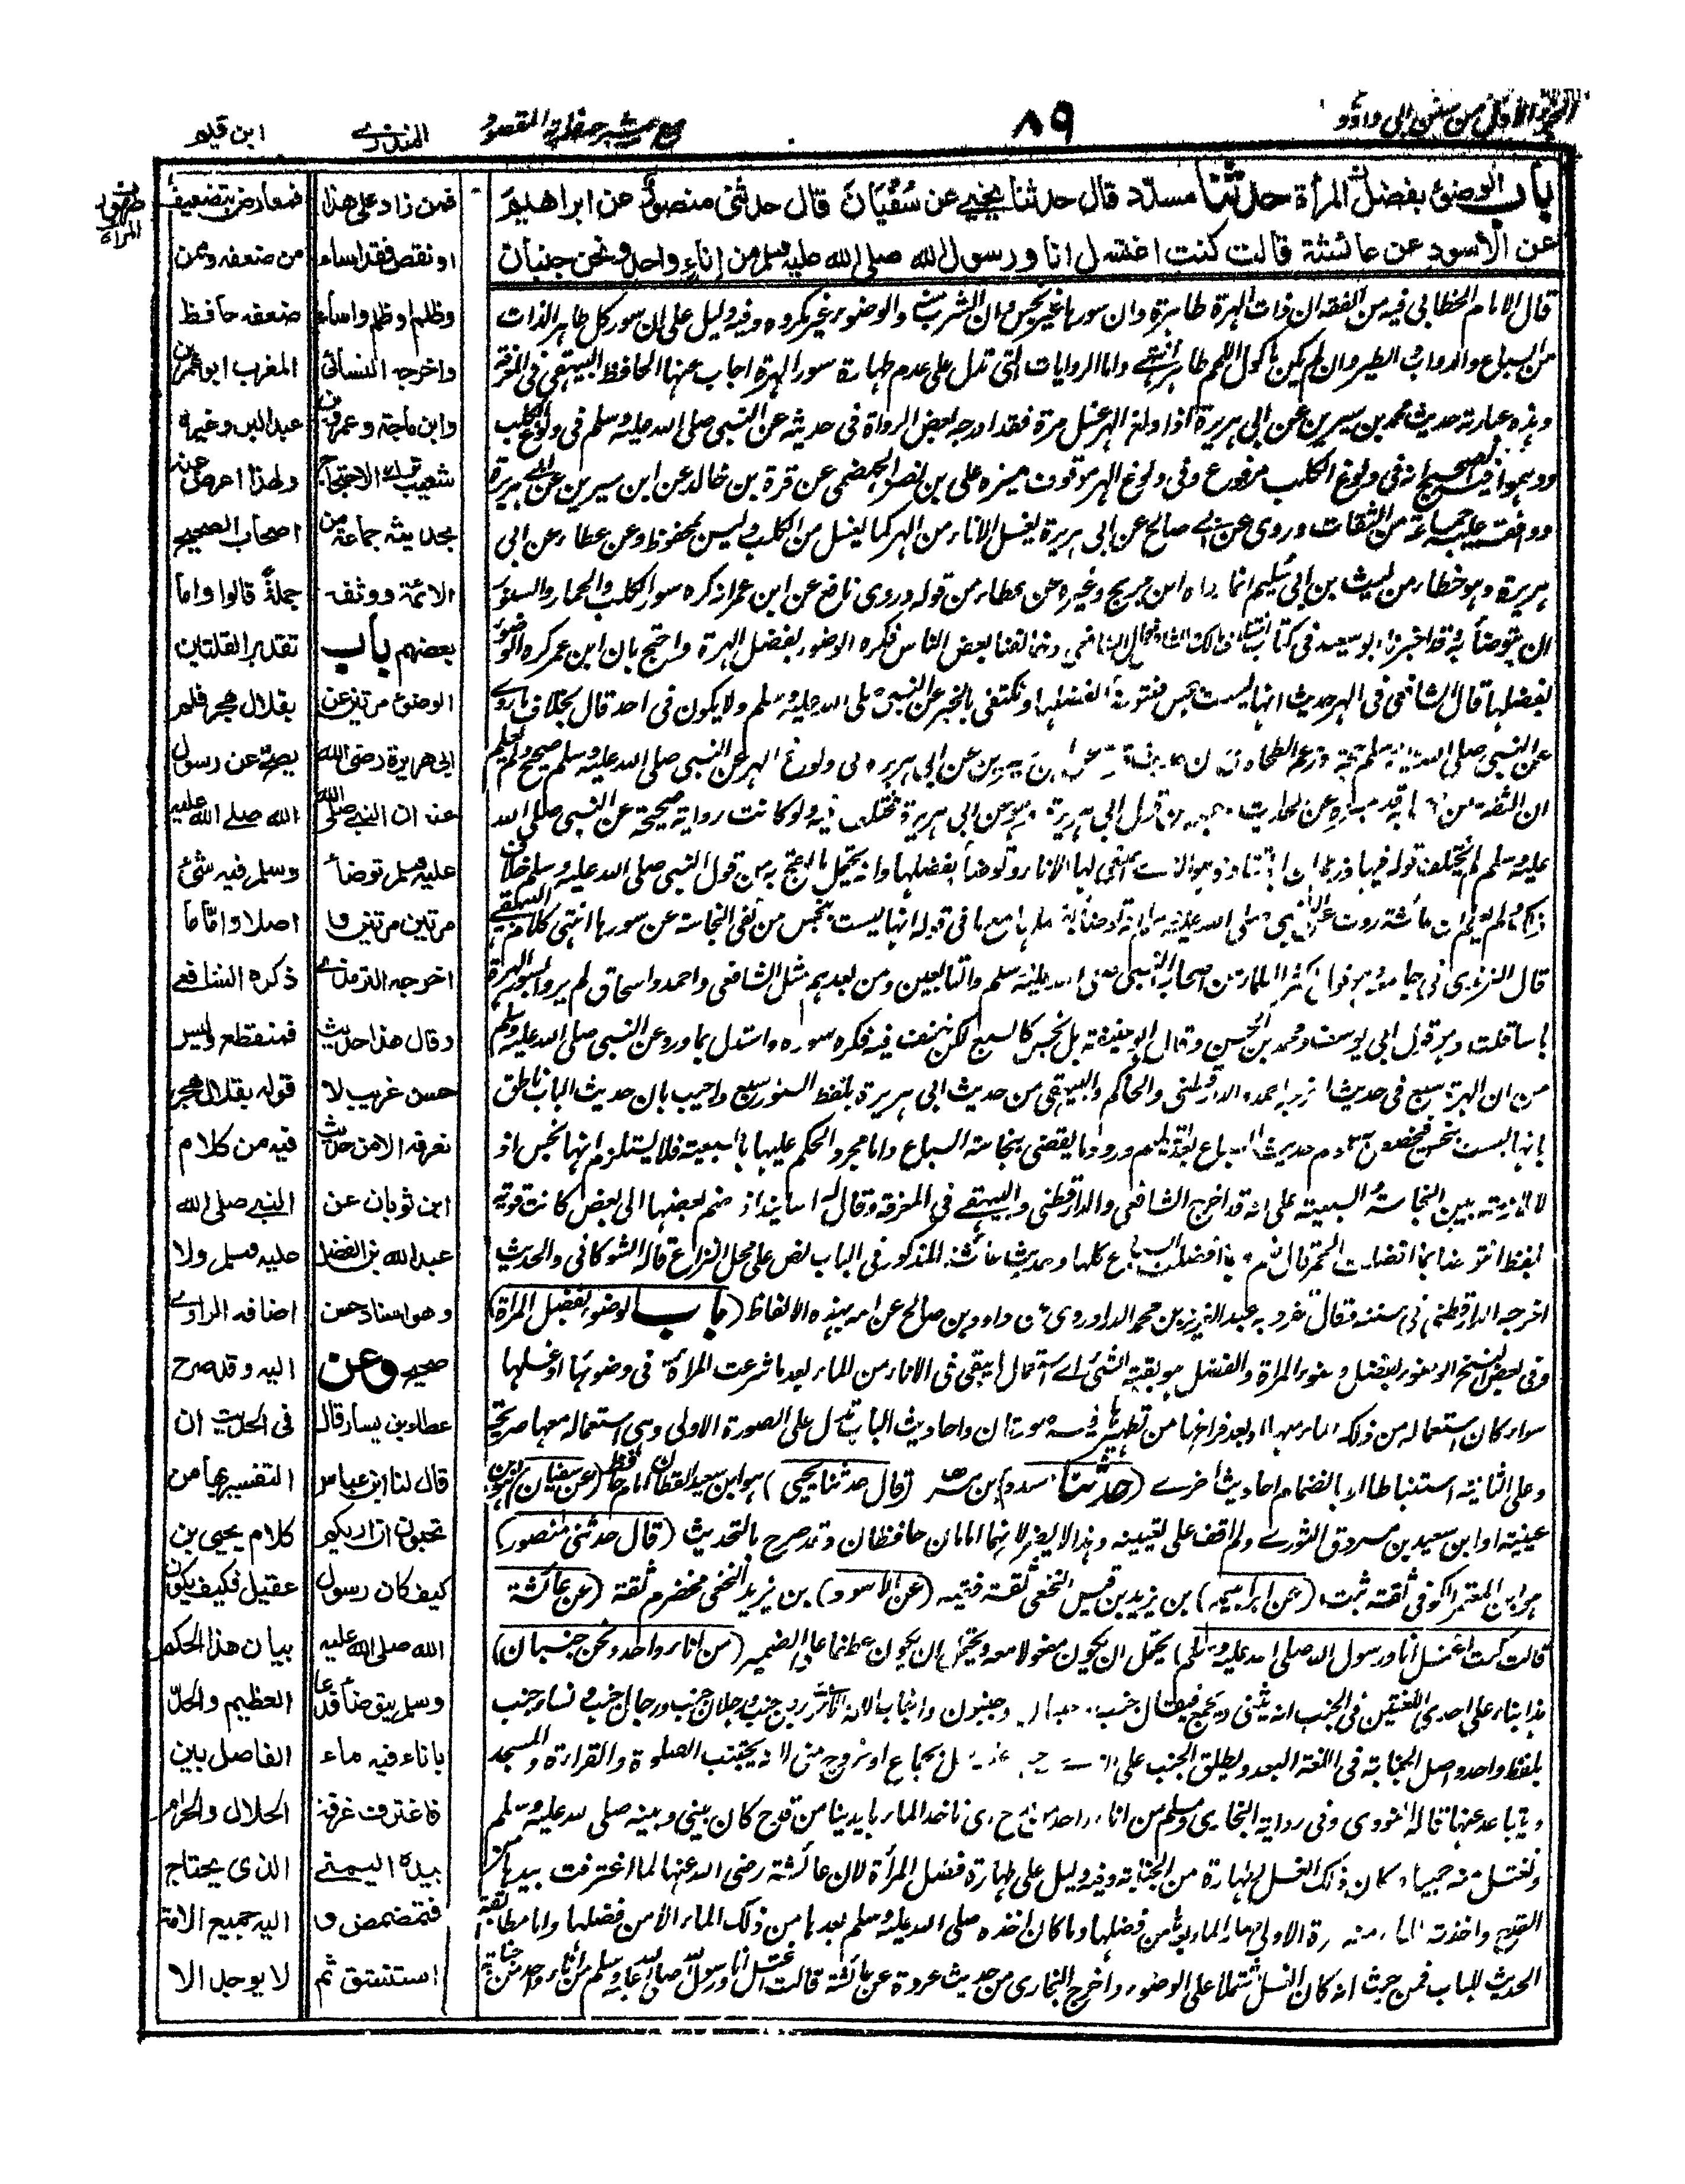 الجزء الاول من سنن ابى داؤد
٨٩
مع شرحه غاية المقصود
المنذرى
ابن قيم
باب الوضوء بفضل المرأة حدثنا مسدد قال حدثنا يحيى عن سفيان قال حدثنى منصور عن ابراهيم
عن الاسود عن عائشة قالت كنت اغتسل انا ورسول الله صلى الله عليه وسلم من إناء واحد ونحن جنبان
قال الامام الخطابى فيه من الفقه ان ذات الهرة طاهرة وان سورها غير نجس وان الشرب منه والوضوء غير مكروه وفيه دليل على ان سور كل طاهر الذات
من السباع والدواب والطير وان لم يكن ماكول اللحم طاهر انتهى واما الروايات التى تدل على عدم طهارة سور الهرة اجاب عنها الحافظ البيهقى فى المعرفة
وهذه عبارته حديث محمد بن سيرين عن ابى هريرة اذا ولغ الهر غسل مرة فقد ادرجه بعض الرواة فى حديثه عن النبى صلى الله عليه وسلم فى ولوغ الكلب
ووهموا فيه الصحيح انه فى ولوغ الكلب مرفوع وفى ولوغ الهر موقوف ميزه على بن نصر الجهضمى عن قرة بن خالد عن ابن سيرين عن ابى هريرة
ووافقه عليه جماعة من الثقات وروى عن ابى صالح عن ابى هريرة يغسل الاناء من الهر كما يغسل من الكلب وليس بمحفوظ وعن عطاء عن ابى
هريرة وهو خطاء من ليث بن ابى سليم انما رواه ابن جريج وغيره عن عطاء من قوله وروى نافع عن ابن عمر انه كره سور الكلب والحمار والسنور
ان يتوضأ به قد اخبرنا ابو سعيد فى كتاب قال الشافعى وخالفنا بعض الناس فكره الوضوء بفضل الهرة واحتج بان ابن عمر كره الوضوء
بفضلها قال الشافعى فى الهر حديث انها ليست بنجس فنتوضأ بفضلها ونكتفى بالخبر عن النبى صلى الله عليه وسلم ولا يكون فى احد قال بخلاف ما روى
عن النبى صلى الله عليه وسلم حجة وزعم الطحاوى ان حديث ابن سيرين عن ابى هريرة فى ولوغ الهر عن النبى صلى الله عليه وسلم صحيح ولم يعلم
قال الترمذى فى جامعه وهو قول اكثر العلماء من اصحاب النبى صلى الله عليه وسلم والتابعين ومن بعدهم مثل الشافعى واحمد واسحاق لم يروا بسور الهرة
باسا قلت وهو قول ابى يوسف ومحمد بن الحسن وقال ابو حنيفة بل نجس كالسبع لكن خفف فيه فكره سوره واستدل بما ورد عن النبى صلى الله عليه وسلم
من ان الهرة سبع فى حديث اخرجه احمد والدارقطنى والحاكم والبيهقى من حديث ابى هريرة بلفظ السنور سبع واجيب بان حديث الباب ناطق
بانها ليست بنجس فيخصص به عموم حديث السباع بعد تسليم ورود ما يقضى بنجاسة السباع واما مجرد الحكم عليها بالسبعية فلا يستلزم انها نجس اذ
لا ملازمة بين النجاسة والسبعية على انه قد اخرج الشافعى والدارقطنى والبيهقى فى المعرفة وقال له اسانيد اذا ضم بعضها الى بعض كانت قوية
بلفظ انتوضأ بما افضلت الحمر قال نعم وبما افضلت السباع كلها وحديث عائشة المذكور فى الباب نص على محل النزاع قاله الشوكانى والحديث
اخرجه الدارقطنى فى سننه وقال تفرد به عبد العزيز بن محمد الدراوردى عن داود بن صالح عن امه بهذه الالفاظ (باب الوضوء بفضل المرأة)
وفى بعض النسخ الوضوء بفضل وضوء المرأة والفضل هو بقية الشئ اى استعمال ما يبقى فى الاناء من الماء بعد ما شرعت المرأة فى وضوئها او غسلها
سواء كان استعماله من ذلك الماء معها او بعد فراغها من تطهيرها فيه صورتان واحاديث الباب تدل على الصورة الاولى وهى استعماله معها صريحة
وعلى الثانية استنباطا او بانضمام احاديث اخرى (حدثنا مسدد) بن مسرهد (قال حدثنا يحيى) هو ابن سعيد القطان امام حافظ (عن سفيان) هو ابن
عيينة او ابن سعيد بن مسروق الثورى ولم اقف على تعيينه وهذا لا يضر لانهما امامان حافظان وقد صرح بالتحديث (قال حدثنى منصور)
هو ابن المعتمر الكوفى ثقة ثبت (عن ابراهيم) بن يزيد بن قيس النخعى ثقة فقيه (عن الاسود) بن يزيد النخعى مخضرم ثقة (عن عائشة
قالت كنت اغتسل انا ورسول الله صلى الله عليه وسلم) يحتمل ان يكون مفعولا معه ويحتمل ان يكون عطفا على الضمير (من اناء واحد ونحن جنبان)
هذا بناء على احدى اللغتين فى الجنب انه يثنى ويجمع فيقال جنب وجنبان وجنبون واجناب واللغة الاخرى رجل جنب ورجلان جنب ورجال جنب ونساء جنب
بلفظ واحد واصل الجنابة فى اللغة البعد ويطلق الجنب على الذى وجب عليه الغسل بجماع او خروج منى لانه يجتنب الصلوة والقراءة والمسجد
ويتباعد عنها قاله النووى وفى رواية البخارى ومسلم من اناء واحد ناخذ الماء بايدينا من قدح كان بينى وبينه صلى الله عليه وسلم
ونغتسل منه جميعا وكان ذلك الغسل طهارة من الجنابة وفيه دليل على طهارة فضل المرأة لان عائشة رضى الله عنها لما اغترفت بيدها من
القدح واخذت الماء منه المرة الاولى صار الماء بعد من فضلها وما كان اخذه صلى الله عليه وسلم بعدها من ذلك الماء الا من فضلها واما مطابقة
الحديث للباب فمن حيث انه كان الغسل مشتملا على الوضوء واخرج البخارى من حديث عروة عن عائشة قالت كنت اغتسل انا ورسول الله صلى الله عليه وسلم من اناء واحد من جنابة
فمن زاد على هذا
او نقص فقد اساء
وظلم او ظلم واساء
واخرجه النسائى
وابن ماجة وعمرو بن
شعيب ترك الاحتجاج
بحديثه جماعة من
الائمة ووثقه
بعضهم باب
الوضوء مرتين عن
ابى هريرة رضى الله
عنه ان النبى صلى الله
عليه وسلم توضأ
مرتين مرتين و
اخرجه الترمذى
وقال هذا حديث
حسن غريب لا
نعرفه الا من حديث
ابن ثوبان عن
عبد الله بن الفضل
وهو اسناد حسن
صحيح وعن
عطاء بن يسار قال
قال لنا ابن عباس
تحبون ان اريكم
كيف كان رسول
الله صلى الله عليه
وسلم يتوضأ فدعا
باناء فيه ماء
فاغترف غرفة
بيده اليمنى
فتمضمض و
استنشق ثم
فمعارض بتضعيف
من ضعفه وممن
ضعفه حافظ
المغرب ابو عمر بن
عبد البر وغيره
ولهذا اعرض عنه
اصحاب الصحيح
جملة قالوا واما
تقدير القلتين
بقلال هجر فلم
يصح عن رسول
الله صلى الله عليه
وسلم فيه شئ
اصلا واما ما
ذكره الشافعى
فمنقطع وليس
قوله بقلال هجر
فيه من كلام
النبى صلى الله
عليه وسلم ولا
اضافه الراوى
اليه وقد صرح
فى الحديث ان
التفسير بها من
كلام يحيى بن
عقيل فكيف يكون
بيان هذا الحكم
العظيم والحد
الفاصل بين
الحلال والحرام
الذى يحتاج
اليه جميع الامة
لا يوجد الا